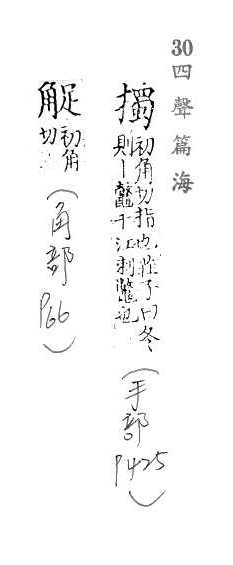 30四聲篇海
擉
初角切指也莊子曰冬
則丨鼈于江刺鼈也
(手部 P425)
初角
切
(角部 P66)